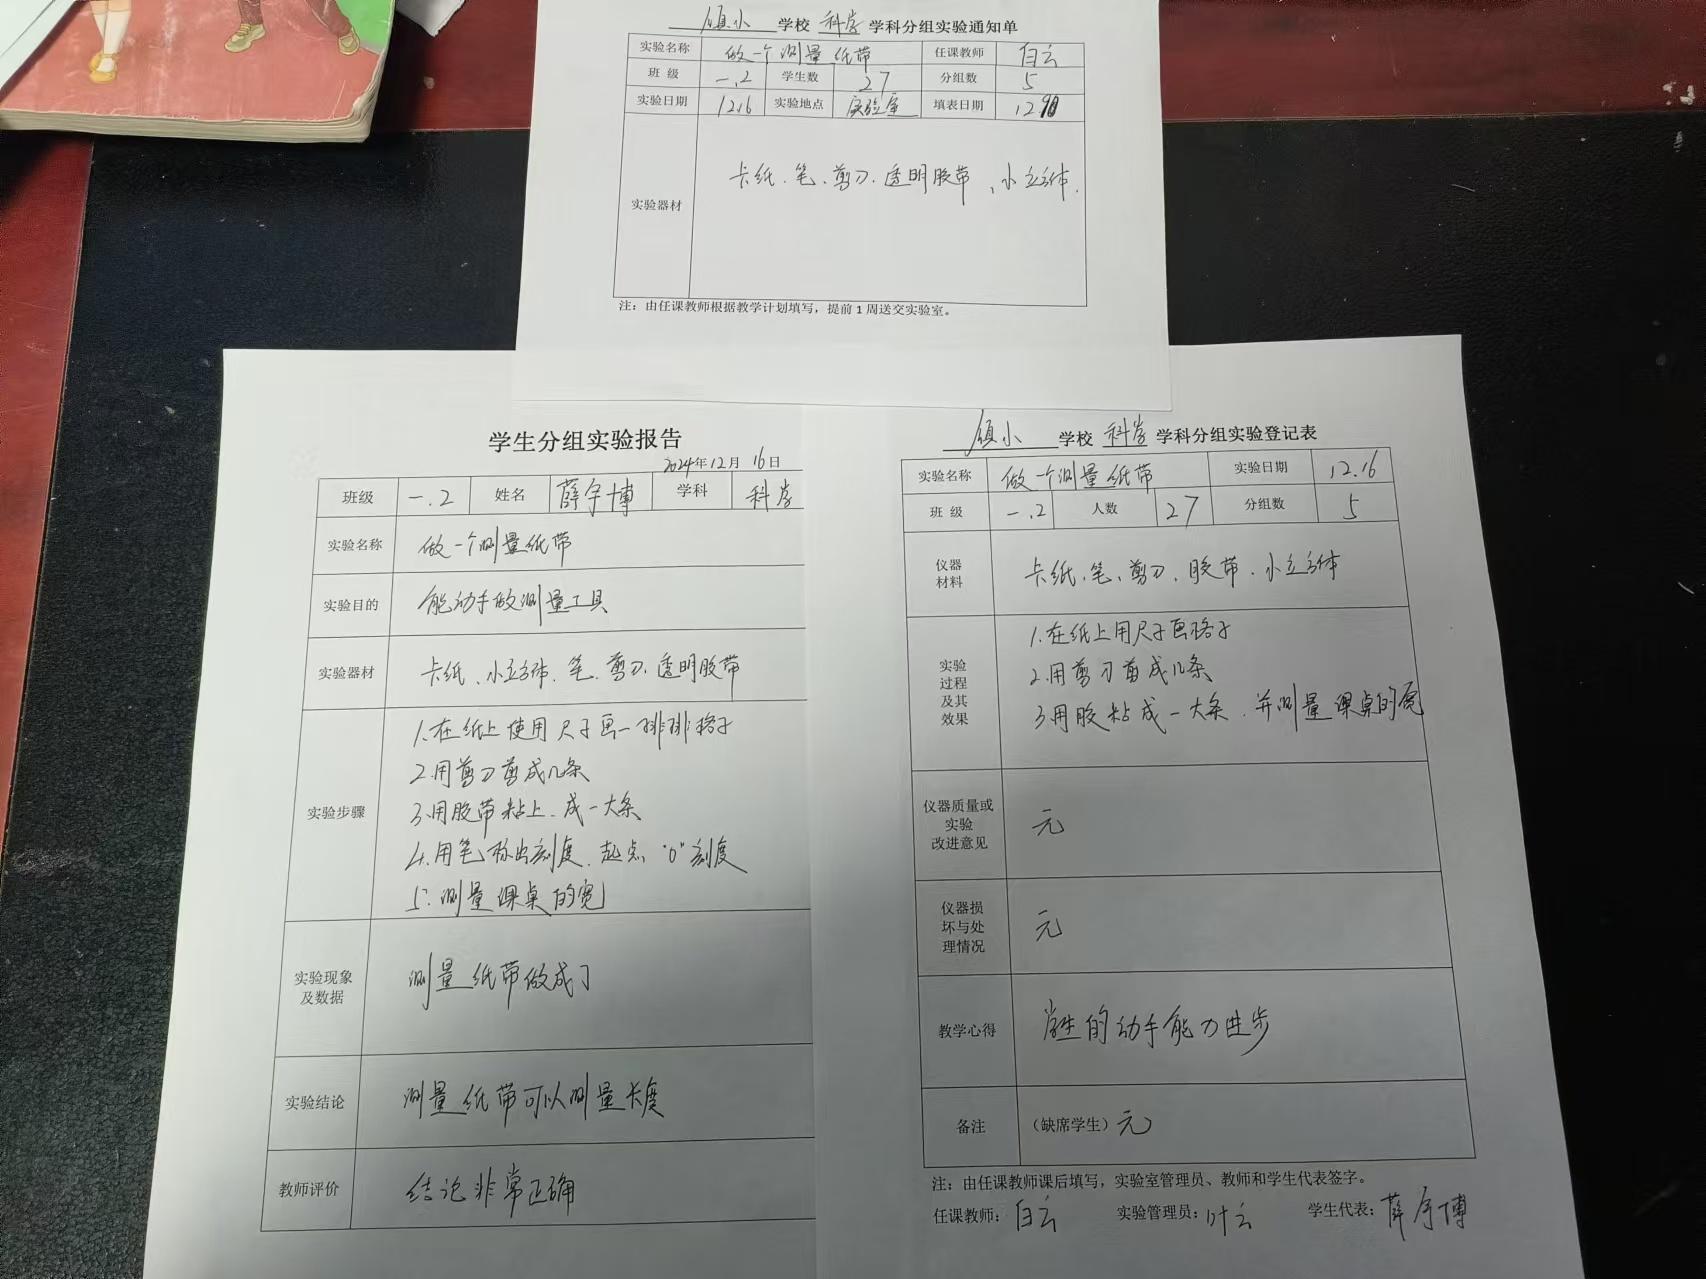 镇小 学校 科学 学科分组实验通知单
实验名称 做一个测量纸带 任课教师 白云
班 级 一.2 学生数 27 分组数 5
实验日期 12.16 实验地点 实验室 填表日期
实验器材 卡纸、笔、剪刀、透明胶带、小立方体.
注：由任课教师根据教学计划填写，提前1周送交实验室。
学生分组实验报告
2024年12月16日
班级 一.2 姓名 薛宇博 学科 科学
实验名称 做一个测量纸带
实验目的 能动手做测量工具
实验器材 卡纸、小立方体、笔、剪刀、透明胶带
实验步骤
1.在纸上使用尺子画一排排格子
2.用剪刀剪成几条
3.用胶带粘上、成一大条
4.用笔标出刻度、起点“0”刻度
5.测量课桌的宽
实验现象
及数据
测量纸带做成了
实验结论 测量纸带可以测量长度
教师评价 结论非常正确
镇小 学校 科学 学科分组实验登记表
实验名称 做一个测量纸带 实验日期 12.16
班 级 一.2 人数 27 分组数 5
仪器
材料
卡纸、笔、剪刀、胶带、小立方体
实验
过程
及其
效果
1.在纸上用尺子画格子
2.用剪刀剪成几条
3.用胶粘成一大条、并测量课桌的宽
仪器质量或
实验
改进意见
无
仪器损
坏与处
理情况
无
教学心得 学生的动手能力进步
备注 （缺席学生）无
注：由任课教师课后填写，实验室管理员、教师和学生代表签字。
任课教师：白云 实验管理员：叶云 学生代表：薛宇博